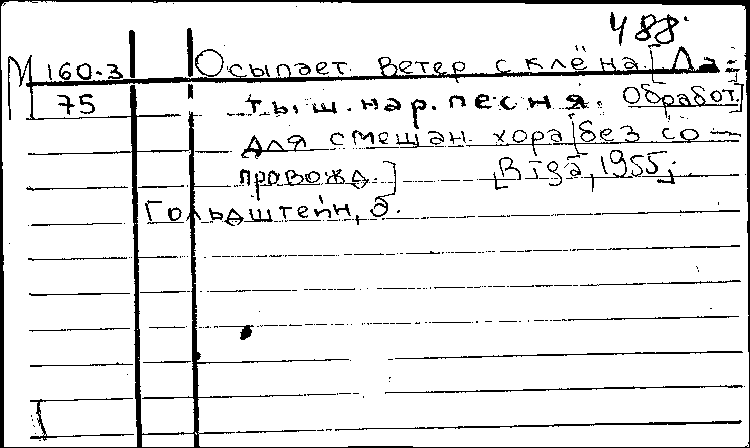 488.
М 160-3 Осыпает ветер с клёна. [Ла=
75 тыш. нар. песня. Обработ.]
для смешан. хора [без со-
провожд.] [Rīgā, 1955].
Гольдштейн, Э.